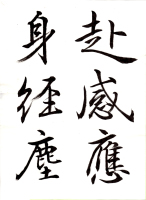 赴感應
身經塵